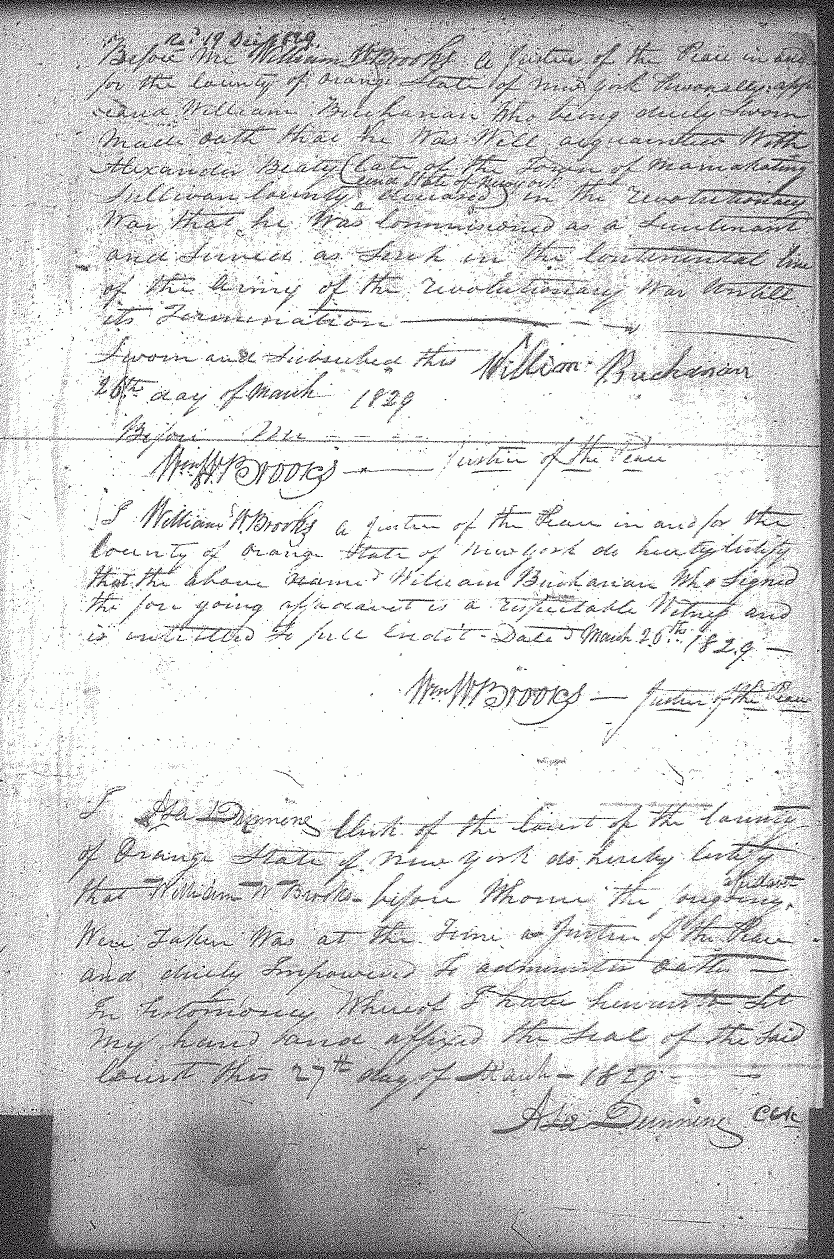 19 Dec 1829
Before Me William W Brooks a Justice of the Peace in and
for the County of Orange State of New York Personally appe
eared William Buchanan Who being duely Sworn
Made oath that he Was Well acquainted With
Alexander Beaty (late of the Town of Mamakating
and State of New york
Sullivan County deceased) in the revolutionary
War that he Was Commissioned as a Lieutenant
and Served as Such in the Continental line
of the Army of the revolutionary War Untill
its Termination
Sworn and Subscribed this William Buchanan
26th day of March 1829
Before Me
Wm W Brooks Justice of the Peace
I William W. Brooks a Justice of the Peace in and for the
County of Orange State of New york do hereby Certify
that the above named William Buchanan Who Signed
the fore going affidavit is a respectable Witness and
is intitled to full Credit - Dated March 26th 1829
Wm W Brooks Justice of the Peace
I Asa Dunning Clerk of the Court of the County
of Orange State of New York do hereby Certify
affidavit
that William W Brooks before Whome the forgoing
Were Taken Was at the Time a Justice of the Peace
and duely Impowered To administer oaths
In Testimoney Whereof I have hereunto Set
My hand and affixed the Seal of the Said
Court this 27th day of March 1829
Asa Dunning Clk